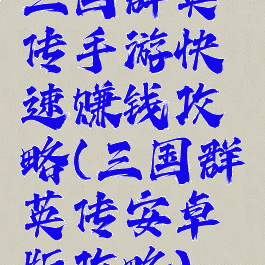 三国群英
传手游快
速赚钱攻
略(三国群
英传安卓
版攻略)